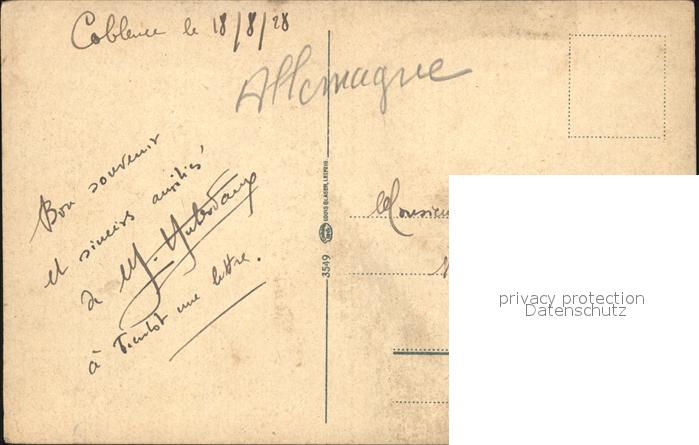 Coblence le 18/8/28
Allemagne
Bon souvenir
et sincères amitiés
de M.
à bientôt une lettre.
3549
LOUIS GLASER, LEIPZIG
Monsieur
privacy protection
Datenschutz